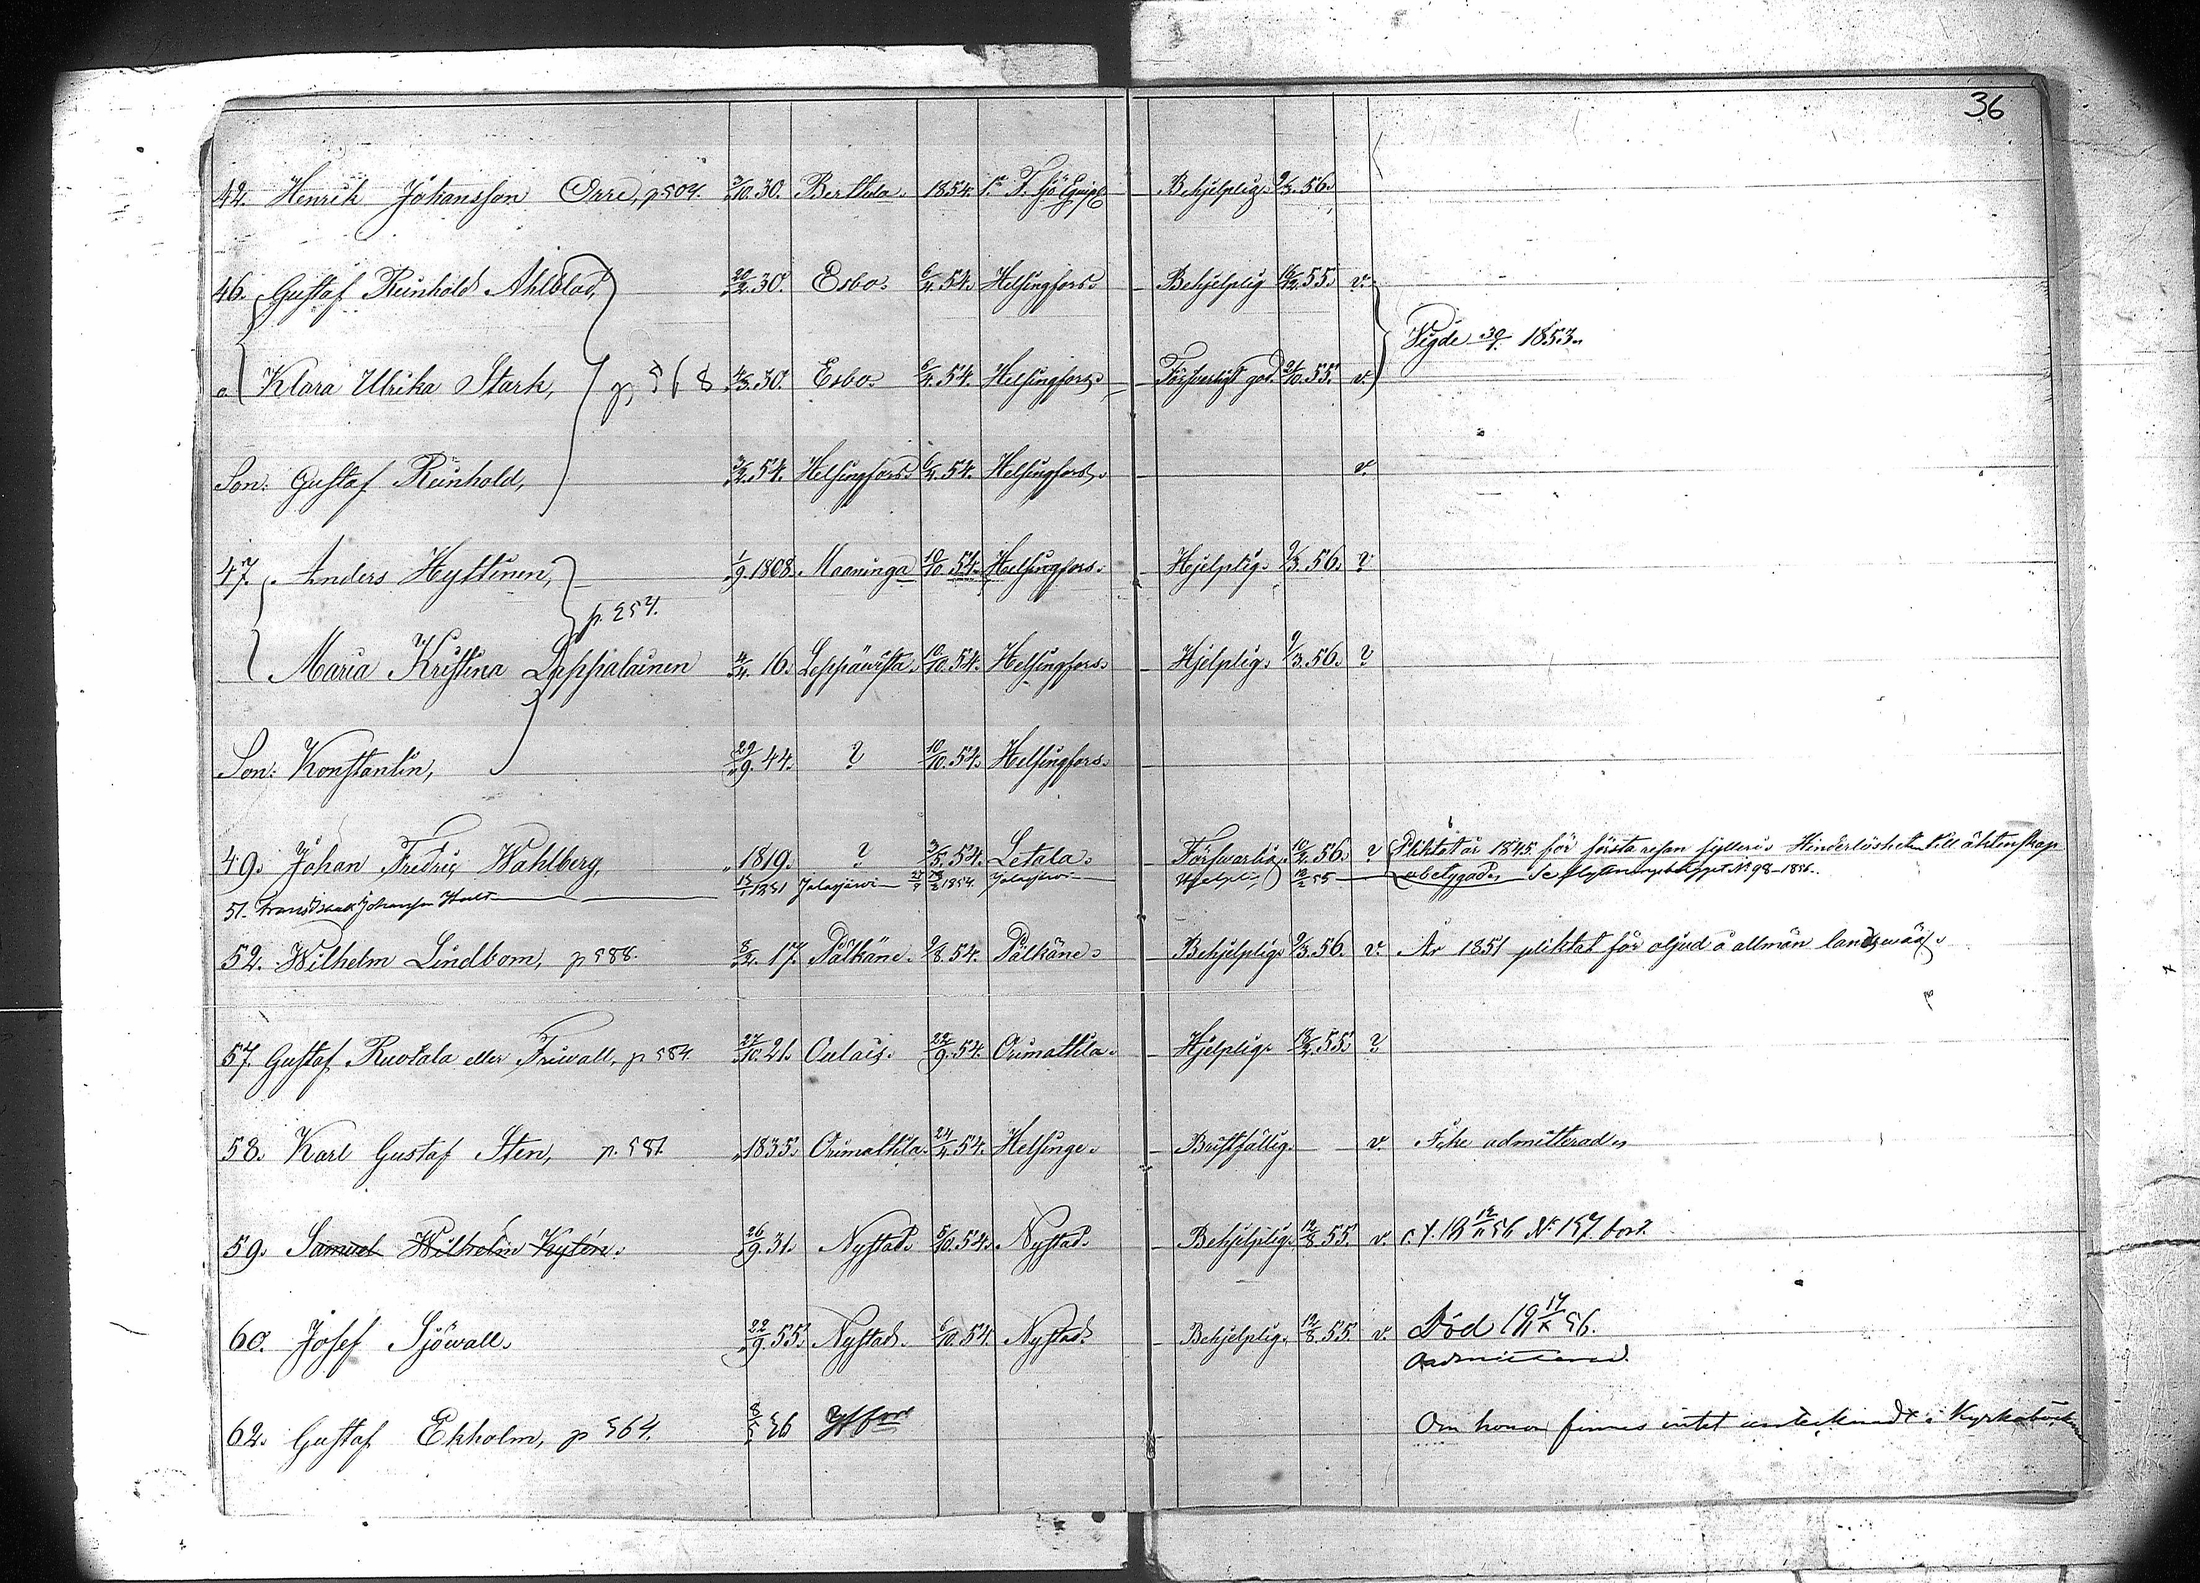 36
42. Henrik Johansson Orre, p 504. 3/10. 30. Berttula. 1854. Behjelplig. 9/3. 56.
46. Gustaf Reinhold Ahlblad, 20/2. 30. Esbo. 6/4. 54. Helsingfors. Behjelplig 55. v.
Vigde 30/9. 1853.
Klara Ulrika Stark, p 568 4/3. 30. Esbo. 6/4. 54. Helsingfors. Försvarligt god. 55. v.
Son: Gustaf Reinhold, 3/2. 54. Helsingfors. 6/4. 54. Helsingfors. v.
47. Anders Hyttinen, 1/9. 1808. Maaninga 10/10 54. Helsingfors. Hjelplig. 9/3. 56. ?
p. 254.
Maria Kristina Lappalainen 4/4. 16. Leppävirta. 10/10. 54. Helsingfors. Hjelplig. 9/3. 56. ?
Son: Konstantin, 29/9. 44. ? 10/10. 54. Helsingfors.
49. Johan Fredric Wahlberg, 1819. ? 3/5. 54. Letala. Försvarlig. 10/2. 56. ? Pliktat år 1845 för första resan fylleri. Hinderlöshet till äktenskap
51. Frans Isaak Johansson 1831 Jalasjärvi 1854 Jalasjärvi Hjelplig 10/2 55 obetygad. Se No 98-1856.
52. Wilhelm Lindbom, p 588. 8/2. 17. Pälkäne. 9/8. 54. Pälkäne. Behjelplig 9/3. 56. v. År 1851 pliktat för oljud å allmän landsväg.
57. Gustaf Ruotala eller Friwall, p 584. 27/10. 21. Oulais. 22/9. 54. Orimattila. Hjelplig. 55. ?
58. Karl Gustaf Sten, p. 581. 1835. Orimattila. 24/4. 54. Helsinge. Bristfällig. v. Icke admitterad.
59. Samuel Wilhelm Kytén. 26/9. 31. Nystad. 5/10. 54. Nystad. Behjelplig. 12/8. 55. v. 12/11 56 No 157. bort.
60. Josef Sjöwall. 22/9. 55. Nystad. 5/10. 54. Nystad. Behjelplig. 12/8. 55. v. Död 17/X 56.
Admitterad.
62. Gustaf Ekholm, p 564. 56 Om honom finnes intet antecknadt i Kyrkoboken